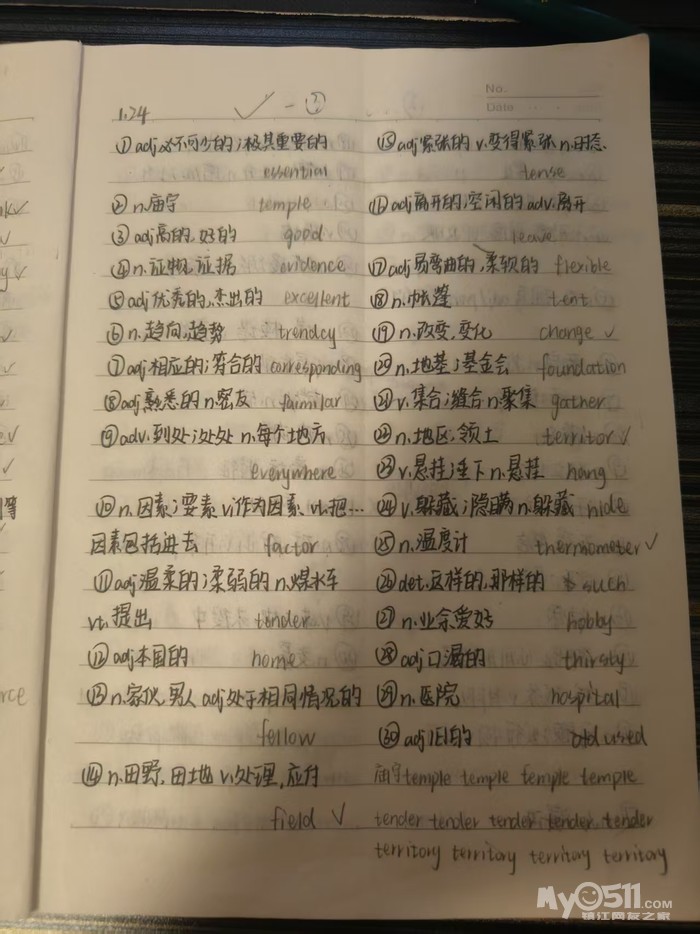 No.
Date
1.24 ✓ -②
①adj必不可少的;极其重要的
essential
②n.庙宇 temple
③adj高的,好的 good
④n.证物,证据 evidence
⑤adj优秀的,杰出的 excellent
⑥n.趋向,趋势 trendcy
⑦adj相应的;符合的 corresponding
⑧adj熟悉的 n.密友 faimilar
⑨adv.到处;处处 n.每个地方
everywhere
⑩n.因素;要素 v.作为因素 vt.把…
因素包括进去 factor
⑪adj温柔的;柔弱的 n.煤水车
vt.提出 tender
⑫adj本国的 home
⑬n.家伙,男人 adj处于相同情况的
fellow
⑭n.田野,田地 v.处理,应付
field ✓
⑮adj紧张的 v.变得紧张 n.时态
tense
⑯adj离开的;空闲的 adv.离开
leave
⑰adj易弯曲的,柔软的 flexible
⑱n.帐篷 tent
⑲n.改变,变化 change ✓
⑳n.地基;基金会 foundation
㉑v.集合;缝合 n.聚集 gather
㉒n.地区,领土 territor ✓
㉓v.悬挂;垂下 n.悬挂 hang
㉔v.躲藏;隐瞒 n.躲藏 hide
㉕n.温度计 thermometer ✓
㉖det.这样的,那样的 such
㉗n.业余爱好 hobby
㉘adj口渴的 thirsty
㉙n.医院 hospital
㉚adj旧的 used
庙宇temple temple temple temple
tender tender tender tender tender
territory territory territory territory
My0511.com
镇江网友之家